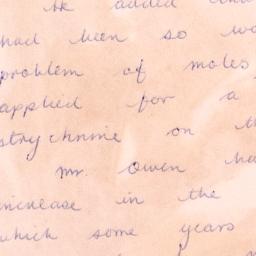 He added
had been so
problem of moles
applied for a
strychnine on
Mr. Owen ha
increase in the
which some years